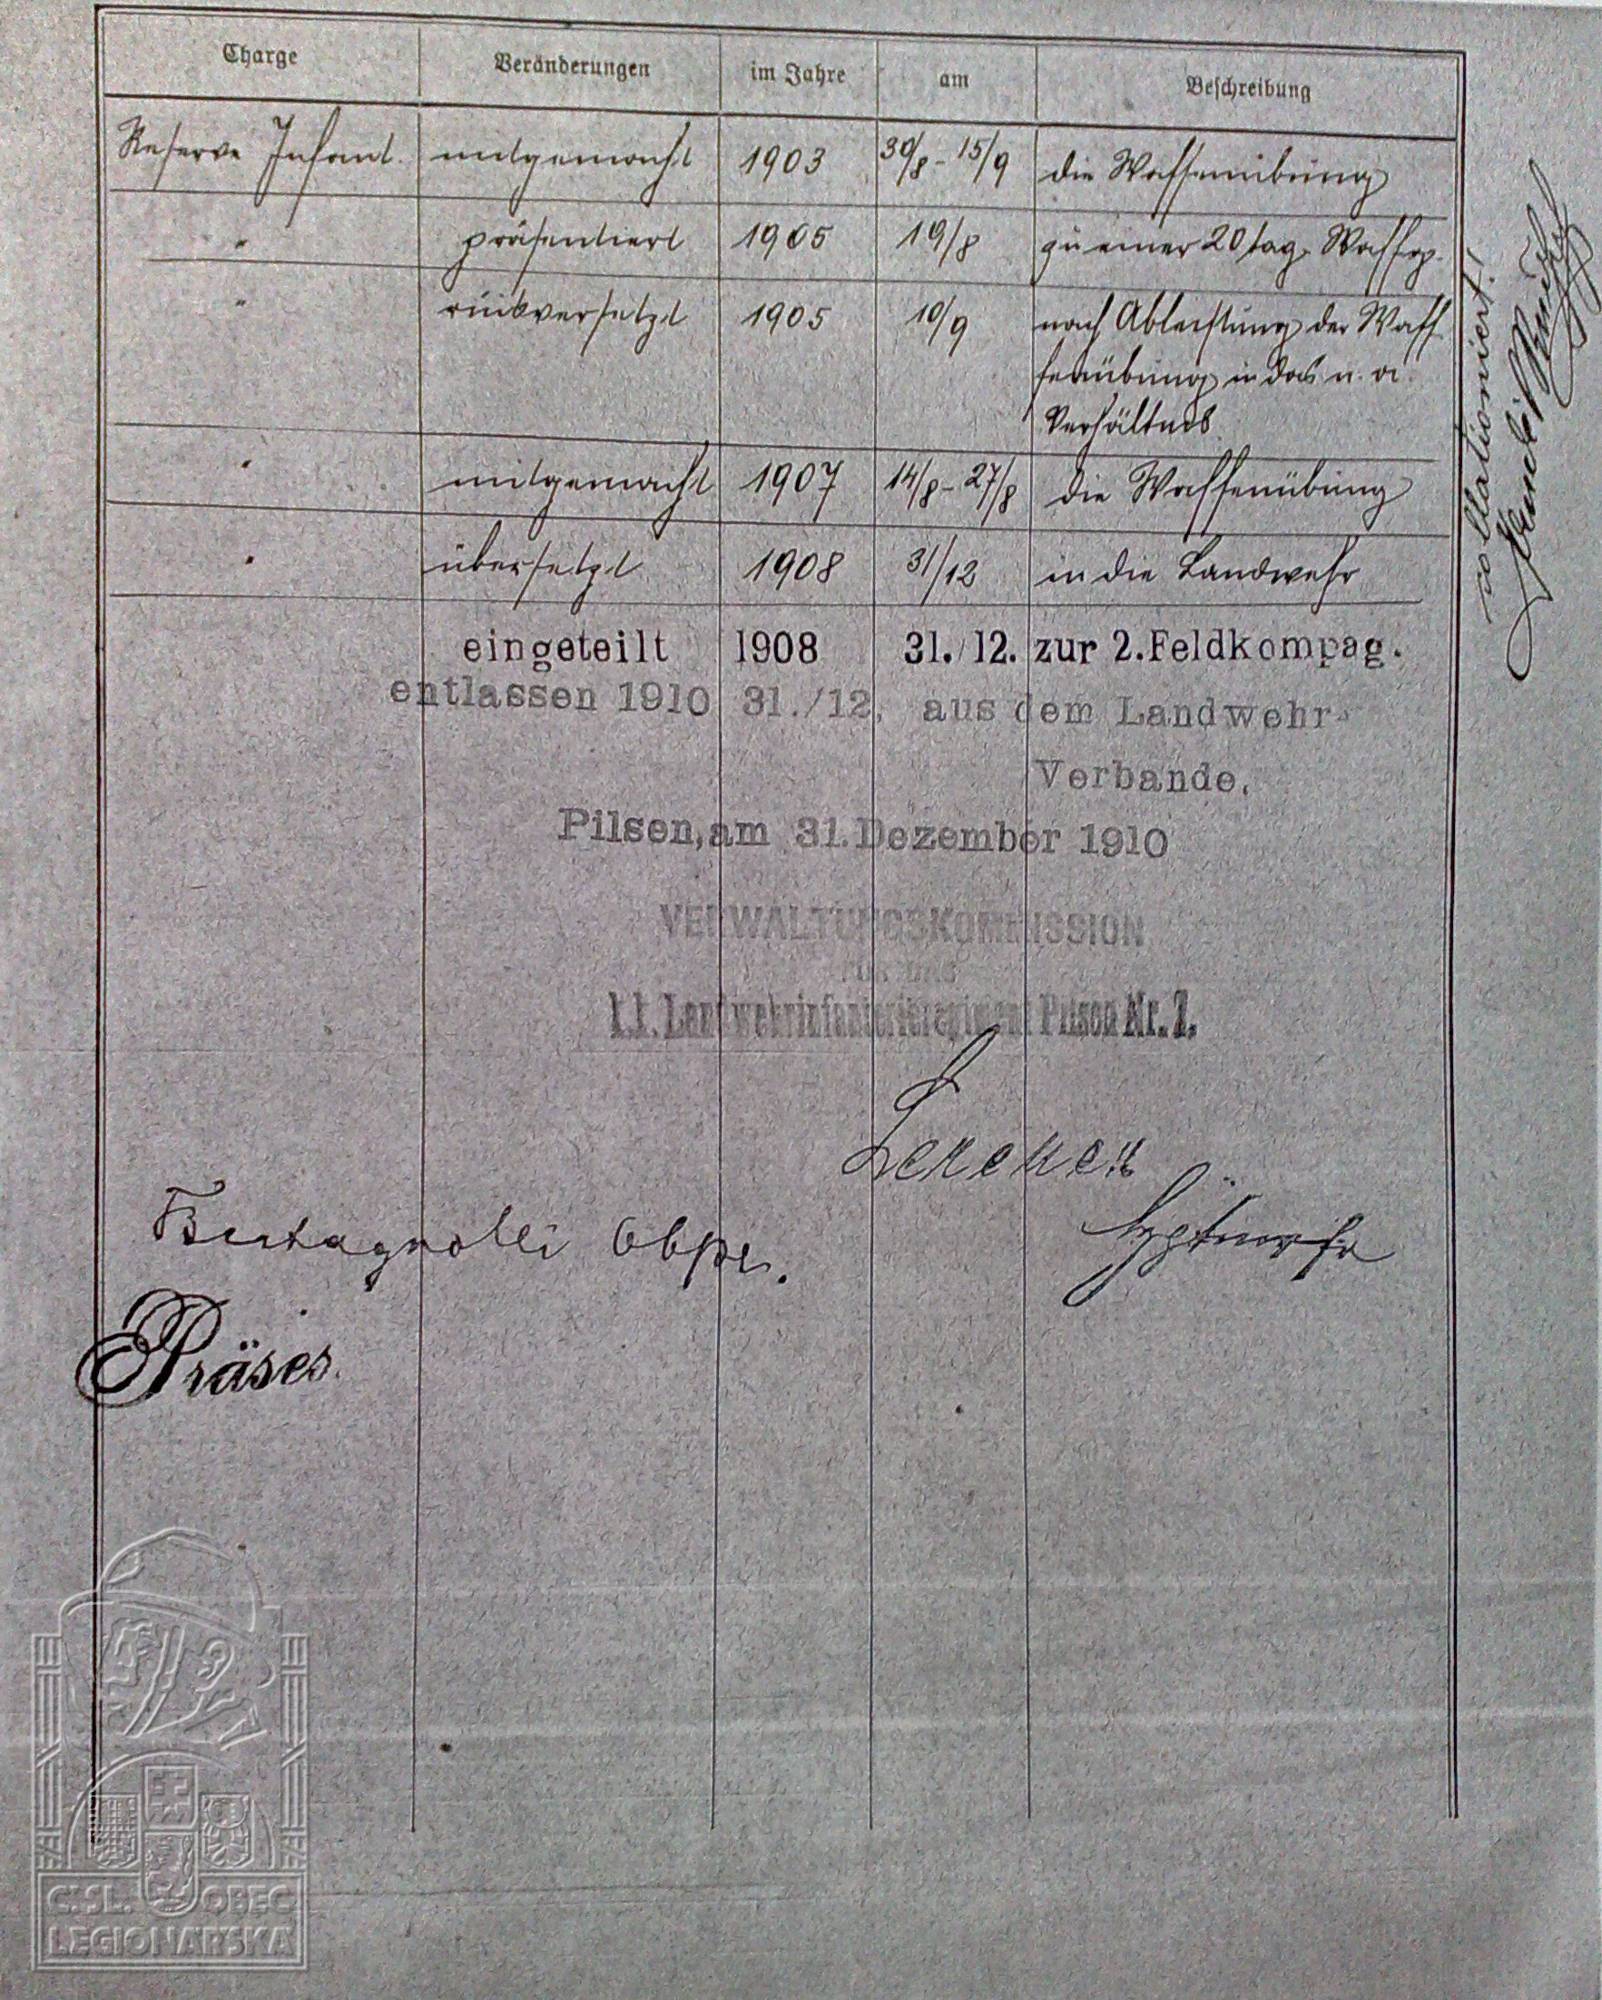 Charge Veränderungen im Jahre am Beschreibung
Reserve Infant. mitgemacht 1903 30/8 - 15/9 die Waffenübung
" präsentiert 1905 19/8 zu einer 20 tag. Waffenüb.
" rückversetzt 1905 10/9 nach Ableistung der Waff-
fenübung in das n. a.
Verhältnis
" mitgemacht 1907 14/8 - 27/8 die Waffenübung
" übersetzt 1908 31/12 in die Landwehr
eingeteilt 1908 31./12. zur 2.Feldkompag.
entlassen 1910 31./12, aus dem Landwehr-
Verbande.
Pilsen, am 31.Dezember 1910
VERWALTUNGSKOMMISSION
FÜR DAS
k.k. Landwehrinfanterieregiment Pilsen Nr. 7.
Bertagnolli Obst.
Präses.
collationiert!
ČSL. OBEC
LEGIONÁŘSKÁ